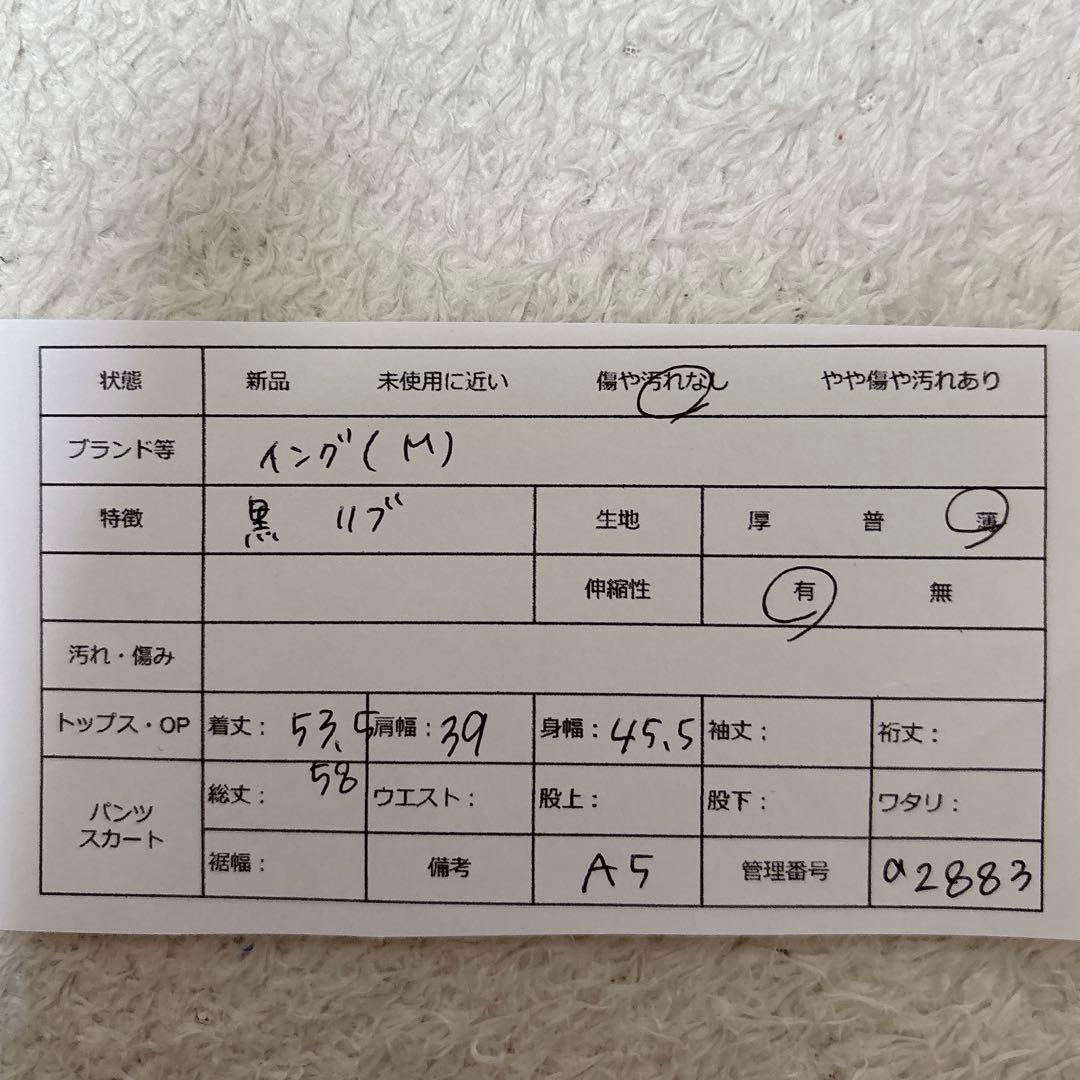 状態 新品 未使用に近い 傷や汚れなし やや傷や汚れあり
ブランド等 イング(M)
特徴 黒 リブ 生地 厚 普 薄
伸縮性 有 無
汚れ・傷み
トップス・OP 着丈: 53.5 肩幅: 39 身幅: 45.5 袖丈: 裄丈:
58
パンツ スカート 総丈: ウエスト: 股上: 股下: ワタリ:
裾幅: 備考 A5 管理番号 a2883